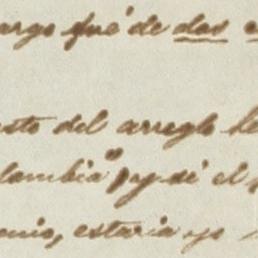 argo fué de dos
esto del arreglo
lombia" y si el
enio, estaria yo